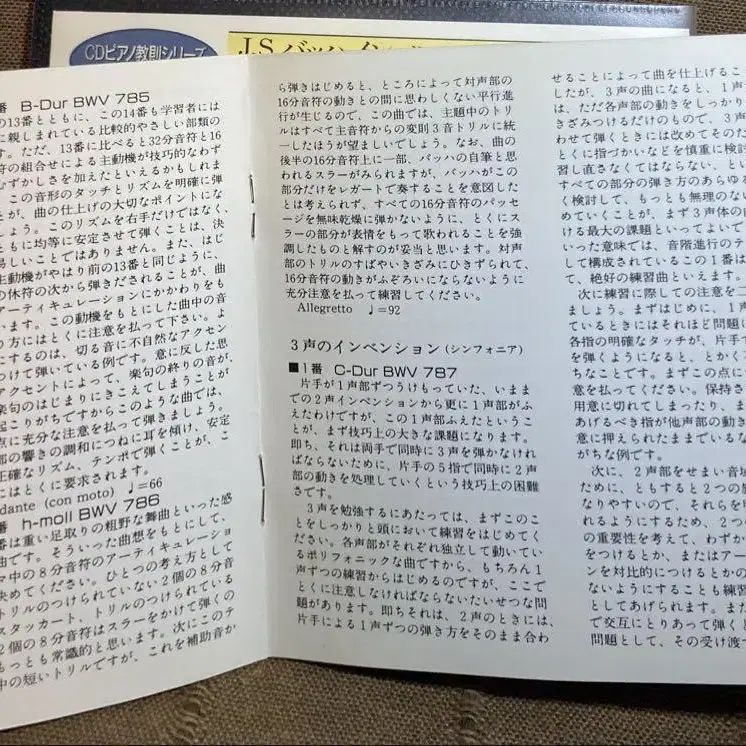 CDピアノ教則シリーズ
J.S.バッハ
番 B-Dur BWV 785
の13番とともに、この14番も学習者には
に親しまれている比較的やさしい部類の
す。ただ、13番に比べると32分音符と16
符の組合せによる主動機が技巧的なわず
むずかしさを加えたといえるかもしれま
。この音形のタッチとリズムを明確に弾
とが、曲の仕上げの大切なポイントにな
しょう。このリズムを右手だけではなく、
ともに均等に安定させて弾くことは、決
易しいことではありません。また、はじ
主動機がやはり前の13番と同じように、
の休符の次から弾きだされることが、曲
アーティキュレーションにかかわりをも
います。この動機をもとにした曲中の音
り方にはとくに注意を払って下さい。よ
にするのは、切る音に不自然なアクセン
つけて弾いている例です。意に反した思
アクセントによって、楽句の終りの音が、
楽句のはじまりにきこえてしまうことが
起こりがちですからこのような曲では、
点に充分な注意を払って弾きましょう。
部の響きの調和につねに耳を傾け、安定
正確なリズム、テンポで弾くことが、こ
にはとくに要求されます。
dante (con moto) ♩=66
番 h-moll BWV 786
番は重い足取りの粗野な舞曲といった感
曲です。そういった曲想をもとにして、
々中の8分音符のアーティキュレーショ
決めてください。ひとつの考え方として
トリルのつけられていない2個の8分音
スタッカート、トリルのつけられている
2個の8分音符はスラーをかけて弾くの
もっとも常識的と思います。次にこのテ
中の短いトリルですが、これを補助音か
ら弾きはじめると、ところによって対声部の
16分音符の動きとの間に思わしくない平行進
行が生じるので、この曲では、主題中のトリ
ルはすべて主音符からの変則3音トリルに統
一したほうが望ましいでしょう。なお、曲の
後半の16分音符上に一部、バッハの自筆と思
われるスラーがみられますが、バッハがこの
部分だけをレガートで奏することを意図した
とは考えられず、すべての16分音符のパッセ
ージを無味乾燥に弾かないように、とくにス
ラーの部分が表情をもって歌われることを強
調したものと解するのが妥当と思います。対声
部のトリルのすばやいきざみにひきずられて、
16分音符の動きがふぞろいにならないように
充分注意を払って練習してください。
Allegretto ♩=92
3声のインベンション(シンフォニア)
■1番 C-Dur BWV 787
片手が1声部ずつうけもっていた、いまま
での2声インベンションから更に1声部がふ
えたわけですが、この1声部ふえたというこ
とが、まず技巧上の大きな課題になります。
即ち、それは両手で同時に3声を弾かなけれ
ばならないために、片手の5指で同時に2声
部の動きを処理していくという技巧上の困難
さです。
3声を勉強するにあたっては、まずこのこ
とをしっかりと頭において練習をはじめてく
ださい。各声部がそれぞれ独立して動いてい
るポリフォニックな曲ですから、もちろん1
声ずつの練習からはじめるのですが、ここで
とくに注意しなければならないたいせつな問
題があります。即ちそれは、2声のときには、
片手による1声ずつの弾き方をそのまま合わ
せることによって曲を仕上げるこ
したが、3声の曲になると、1声
は、ただ各声部の動きをしっかり
きざみつけるだけのもので、3声
わせて弾くときには改めてそのた
とくに指づかいなどを慎重に検討
習し直さなくてはならない、とい
すべての部分の弾き方のあらゆる
く検討して、もっとも無理のない
めていくことが、まず3声体の曲
ける最大の課題といってよいで
いった意味では、音階進行のテ
して構成されているこの1番は
て、絶好の練習曲といえます。
次に練習に際しての注意を二
ましょう。まずはじめに、1声
ているときにはそれほど問題
各指の明確なタッチが、片手で
を弾くようになると、とかく
ちなことです。まずこの点に
意を払ってください。保持さ
用意に切れてしまったり、ま
あげるべき指が他声部の動き
意に押えられたままでいるな
がちな例です。
次に、2声部をせまい音域
ために、ともすると2つの
なりやすいので、それらを
れるようにするため、2つ
の重要性を考えて、わずか
をつけるとか、またはアー
ンを対比的につけるとかの
ないようにすることも練習
としてあげられます。また
で交互にとりあって弾くと
問題として、その受け渡